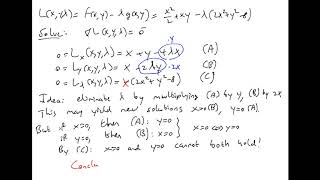 L(x,y,λ) = f(x,y) - λ g(x,y) = x²/2 + xy - λ(2x²+y²-8)
Solve: ∇L(x,y,λ) = 0
·y
0 = Lx(x,y,λ) = x + y - 4λx (A)
0 = Ly(x,y,λ) = x - 2λy ·2x (B)
0 = Lλ(x,y,λ) = (2x²+y²-8) (C)
Idea: eliminate λ by multiplying (A) by y, (B) by 2x
This may yield new solutions x=0 (B), y=0 (A)
But if x=0, then (A): y=0 } x=0 ⇔ y=0
if y=0, then (B): x=0
By (C): x=0 and y=0 cannot both hold!
Conclu